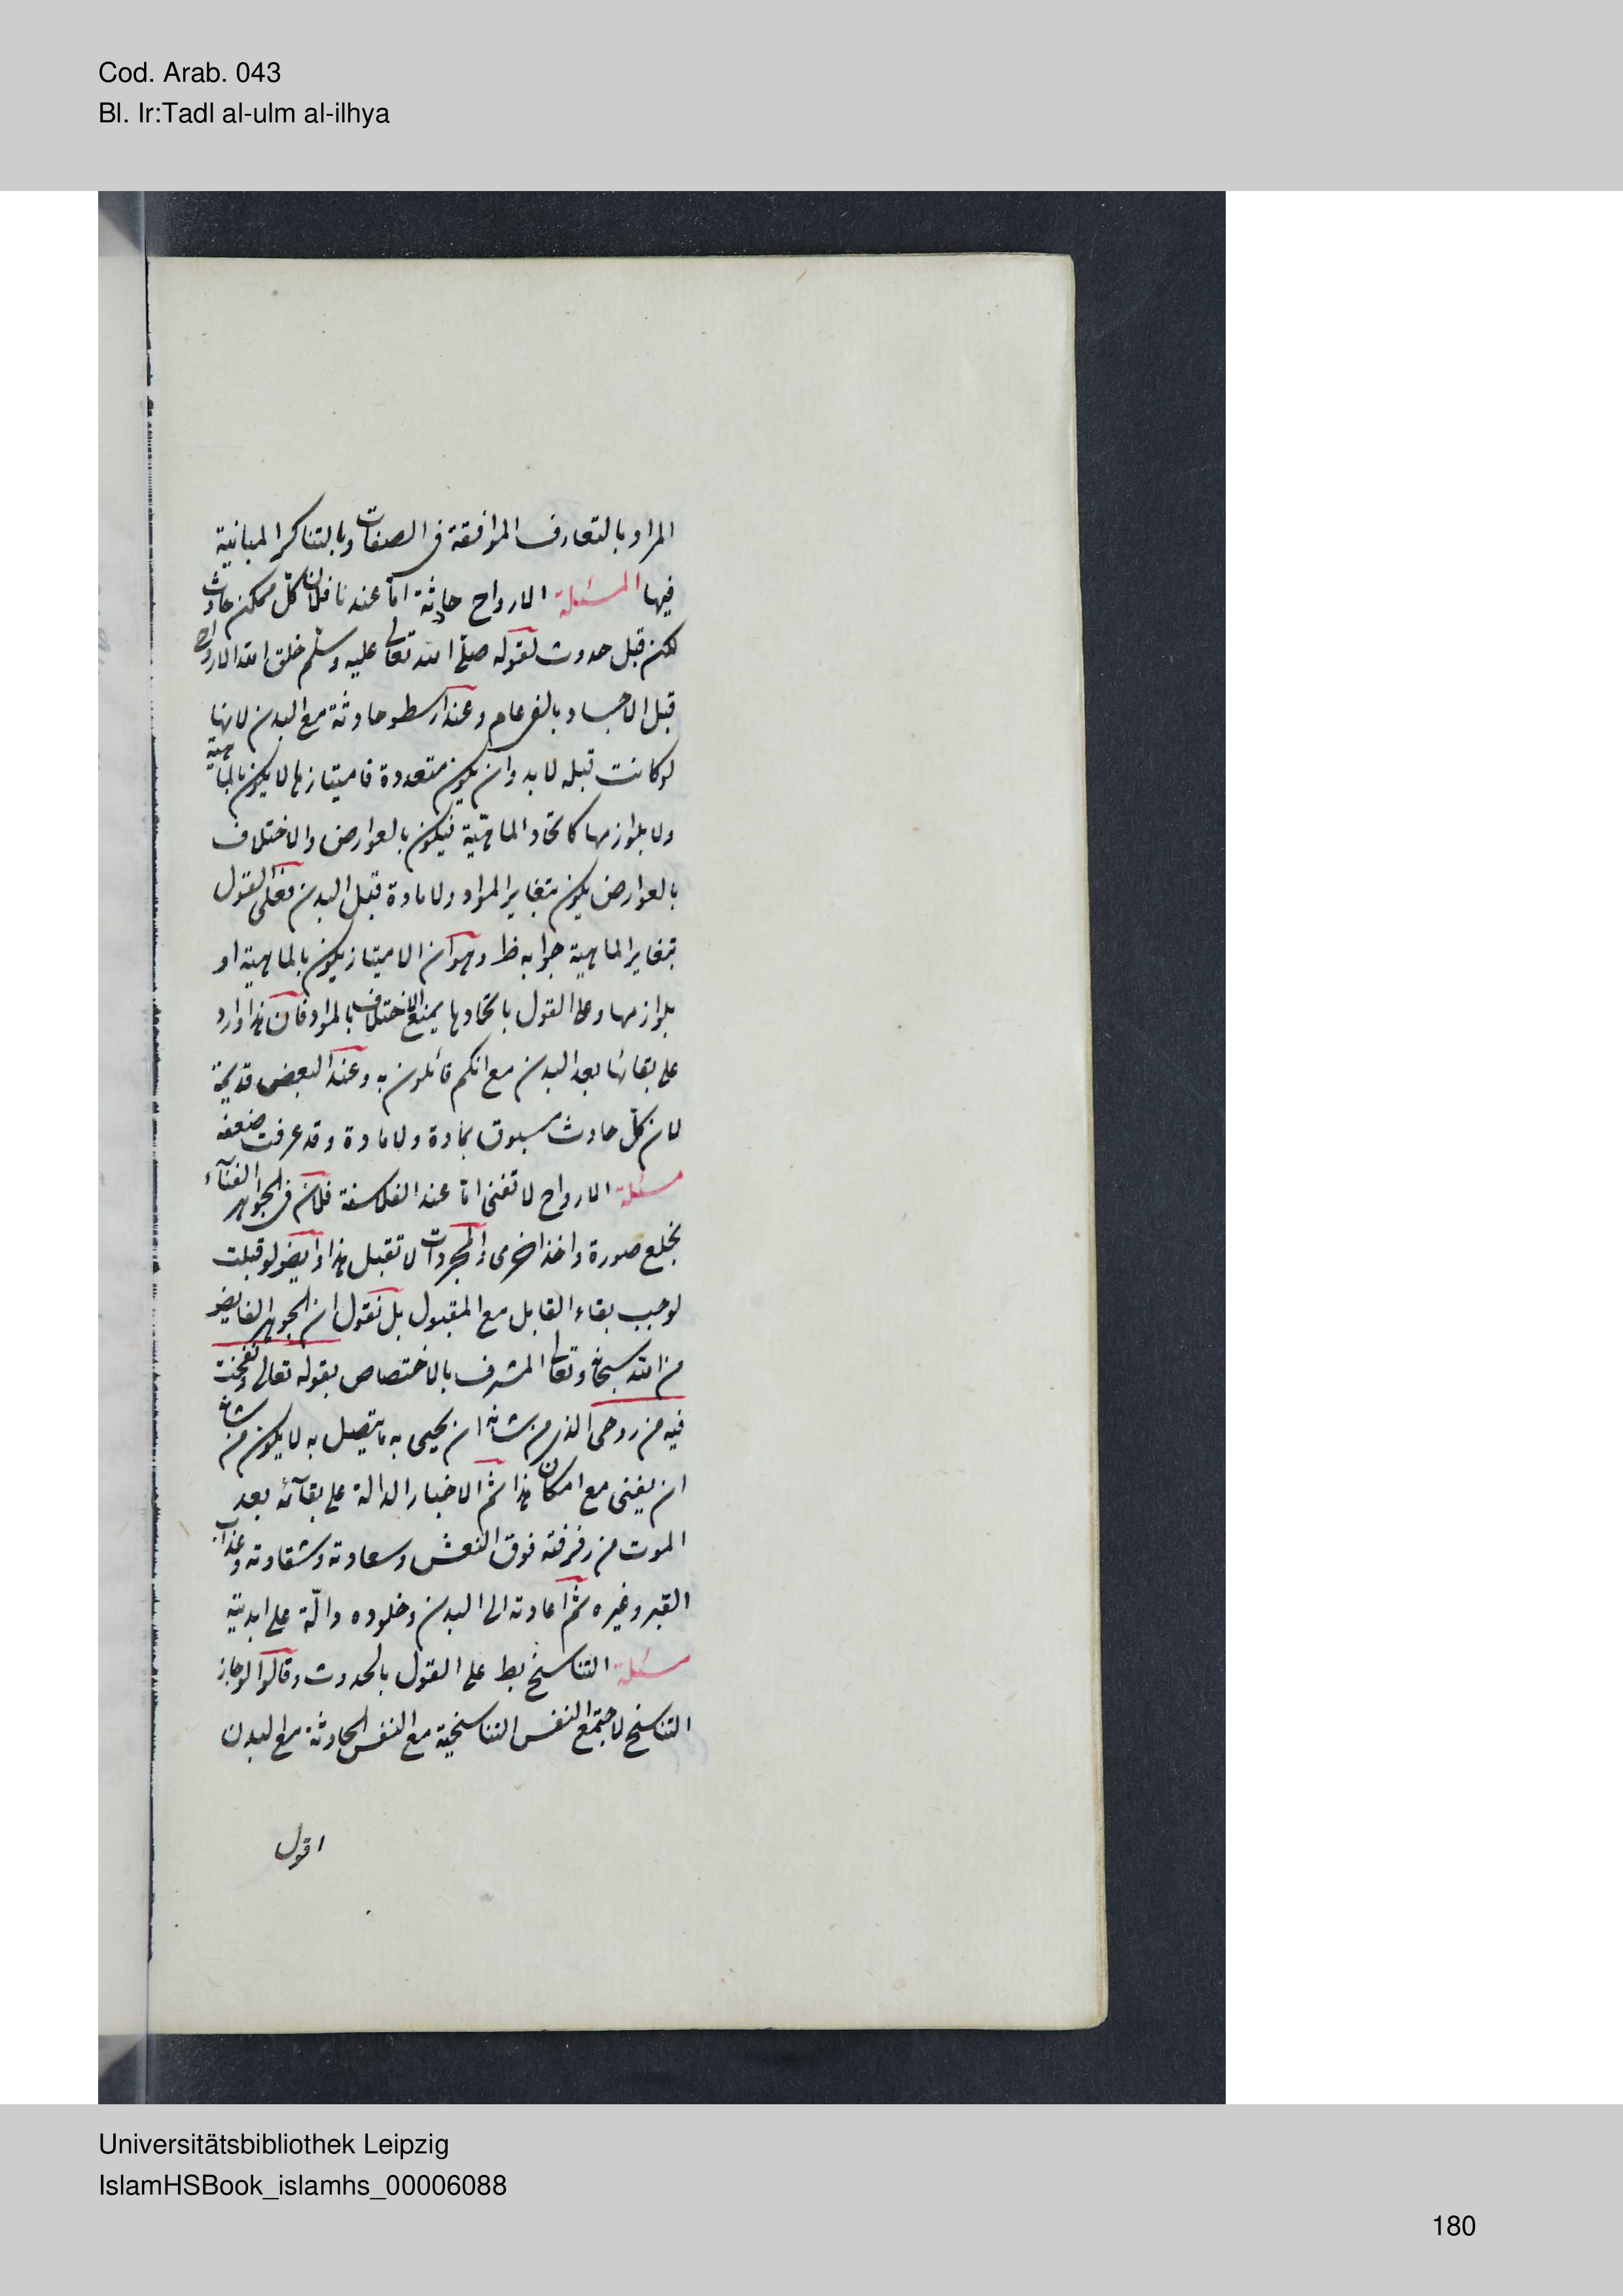 Cod. Arab. 043
Bl. Ir:Tadl al-ulm al-ilhya
المراد بالتعارف الموافقة فى الصفات وبالتناكر المباينة
فيها المسئلة الارواح حادثة اما عندنا فلان كلّ ممكن حادث
لكن قبل حدوث لقوله صلّى الله تعالى عليه وسلّم خلق الله الارواح
قبل الاجساد بالفى عام وعند ارسطو حادثة مع البدن لانها
لو كانت قبله لا بد وان يكون متعددة فامتيازها لا يكون بالماهية
ولا بلوازمها كاتحاد الماهيّة فيكون بالعوارض والاختلاف
بالعوارض يكون بتغاير المواد ولا مادة قبل البدن فعلى القول
بتغاير الماهية جوابه ظ وهو ان الامتياز يكون بالماهية او
بلوازمها وعلى القول باتحادها يمنع الاختلاف بالمواد فان هذا وارد
على بقائها بعد البدن مع انكم قائلون به وعند البعض قديمة
لان كلّ حادث مسبوق بمادة ولا مادة وقد عرفت ضعفه
مسئلة الارواح لا تفنى امّا عند الفلاسفة فلان فى الجواهر الفنآء
بخلع صورة واخذ اخرى والمجردات لا تقبل هذا وايضو لو قبلت
لوجب بقاء القابل مع المقبول بل نقول ان الجوهر الفايض
من الله سبحانه وتعالى المشرف بالاختصاص بقوله تعالى ونفخت
فيه من روحى الذى من شانه ان يحيى به ما يتصل به لا يكون من شانه
ان يفنى مع امكان هذا ثم الاخبار الدالة على بقآئه بعد
الموت من رفرفته فوق النعش وسعادته وشقاوته وعذاب
القبر وغيره ثم اعادته الى البدن وخلوده دالّة على ابديته
مسئلة التناسخ بط على القول بالحدوث وقالوا لو جاز
التناسخ لاجتمع النفس التناسخية مع النفس الحادثة مع البدن
اقول
Universitätsbibliothek Leipzig
IslamHSBook_islamhs_00006088
180